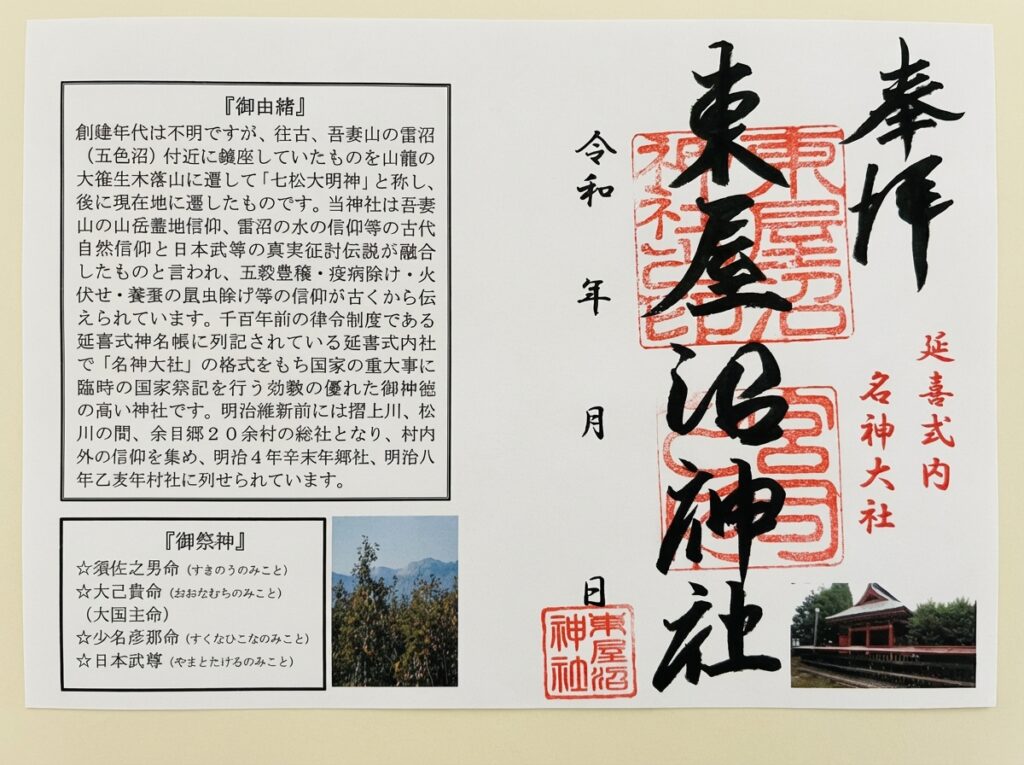 奉拝
延喜式内
名神大社
東屋沼神社
東屋沼
神社印
宮司
令和 年 月 日
東屋沼
神社
『御由緒』
創建年代は不明ですが、往古、吾妻山の雷沼
（五色沼）付近に鎮座していたものを山龍の
大笹生木落山に遷して「七松大明神」と称し、
後に現在地に遷したものです。当神社は吾妻
山の山岳霊地信仰、雷沼の水の信仰等の古代
自然信仰と日本武等の真実征討伝説が融合
したものと言われ、五穀豊穣・疫病除け・火
伏せ・養蚕の昆虫除げ等の信仰が古くから伝
えられています。千百年前の律令制度である
延喜式神名帳に列記されている延書式内社
で「名神大社」の格式をもち国家の重大事に
臨時の国家祭記を行う効数の優れた御神徳
の高い神社です。明治維新前には摺上川、松
川の間、余目郷２０余村の総社となり、村内
外の信仰を集め、明治４年辛末年郷社、明治八
年乙亥年村社に列せられています。
『御祭神』
☆須佐之男命（すきのうのみこと）
☆大己貴命（おおなむちのみこと）
（大国主命）
☆少名彦那命（すくなひこなのみこと）
☆日本武尊（やまとたけるのみこと）